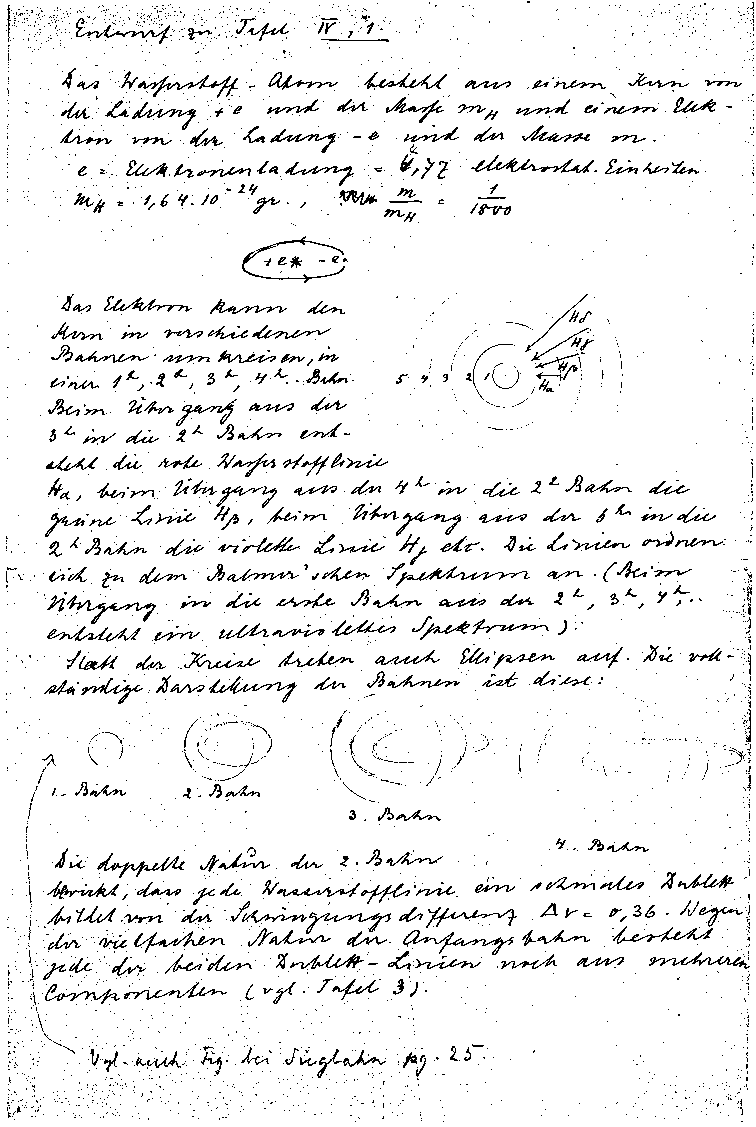 Entwurf zu Tafel IV, 1.
Das Wasserstoff-Atom besteht aus einem Kern von
der Ladung +e und der Masse mH und einem Elek-
tron von der Ladung -e und der Masse m.
e = Elektronenladung = 4,77 elektrostat. Einheiten
mH = 1,64.10^-24 gr., m/mH = 1/1800
+e -e
Das Elektron kann den
Kern in verschiedenen
Bahnen umkreisen, in
einer 1^n, 2^n, 3^n, 4^n.. Bahn
5 4 3 2 1
Hδ
Hγ
Hβ
Hα
Beim Übergang aus der
3^n in die 2^n Bahn ent-
steht die rote Wasserstofflinie
Hα, beim Übergang aus der 4^n in die 2^n Bahn die
grüne Linie Hβ, beim Übergang aus der 5^n in die
2^n Bahn die violette Linie Hγ etc. Die Linien ordnen
sich zu dem Balmer'schen Spektrum an. (Beim
Übergang in die erste Bahn aus der 2^n, 3^n, 4^n,..
entsteht ein ultraviolettes Spektrum).
Statt der Kreise treten auch Ellipsen auf. Die voll-
ständige Darstellung der Bahnen ist diese:
1. Bahn 2. Bahn
3. Bahn
4. Bahn
Die doppelte Natur der 2. Bahn
bewirkt, dass jede Wasserstofflinie ein schmales Dublett
bildet von der Schwingungsdifferenz Δν = 0,36. Wegen
der vielfachen Natur der Anfangsbahn besteht
jede der beiden Dublett-Linien noch aus mehreren
Componenten (vgl. Tafel 3).
Vgl. auch Fig. bei Siegbahn pg. 25.